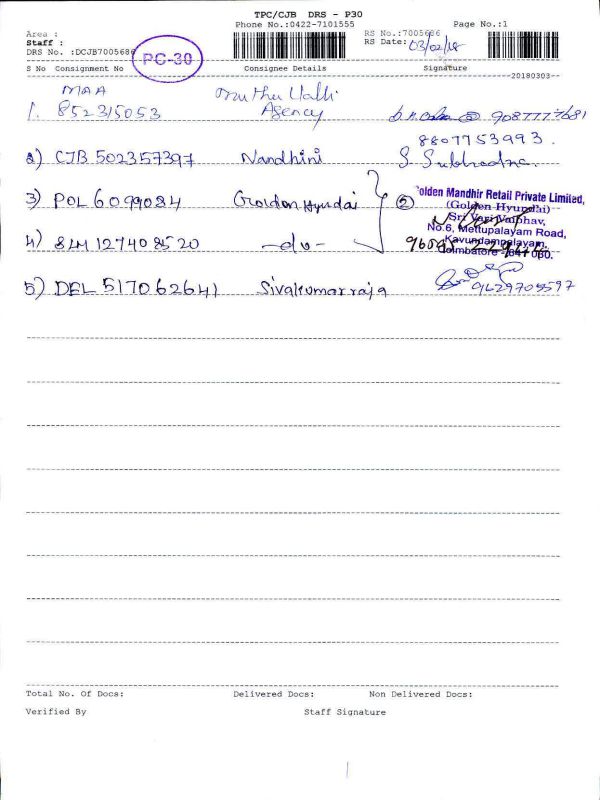 TPC/CJB DRS - P30
Phone No.:0422-7101555 Page No.:1
Area :
Staff :
DRS No. :DCJB7005686
PC-30
RS No.:7005686
RS Date: 03/02/18
S No Consignment No Consignee Details Signature
20180303
1. MAA 852315053 Muthu Valli Agency 9087777681
8807753993.
2) CJB 502357397 Nandhini S. Subhadra.
3) POL 6099084 Golden Hyundai
4) SLM 127408520 -do-
Golden Mandhir Retail Private Limited,
(Golden Hyundai)
Sri Vari Vaibhav,
No.6, Mettupalayam Road,
Kavundampalayam,
Coimbatore - 641 030.
5) DEL 517062641 Sivakumar raja 9629705597
Total No. Of Docs: Delivered Docs: Non Delivered Docs:
Verified By Staff Signature